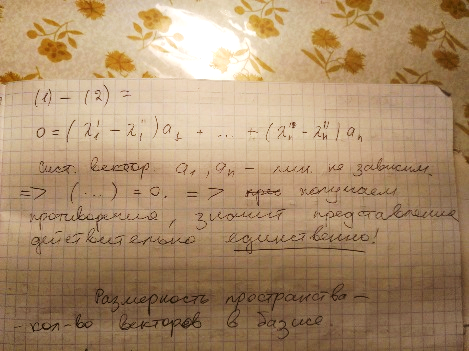 (1) – (2) =
0 = (λ₁' – λ₁'')a₁ + ... + (λₙ' – λₙ'')aₙ
Сист. вектор a₁, aₙ – лин. не зависим.
=> (...) = 0. => получаем
противоречия, значит представление
действительно единственно!
Размерность пространства –
- кол-во векторов в базисе.